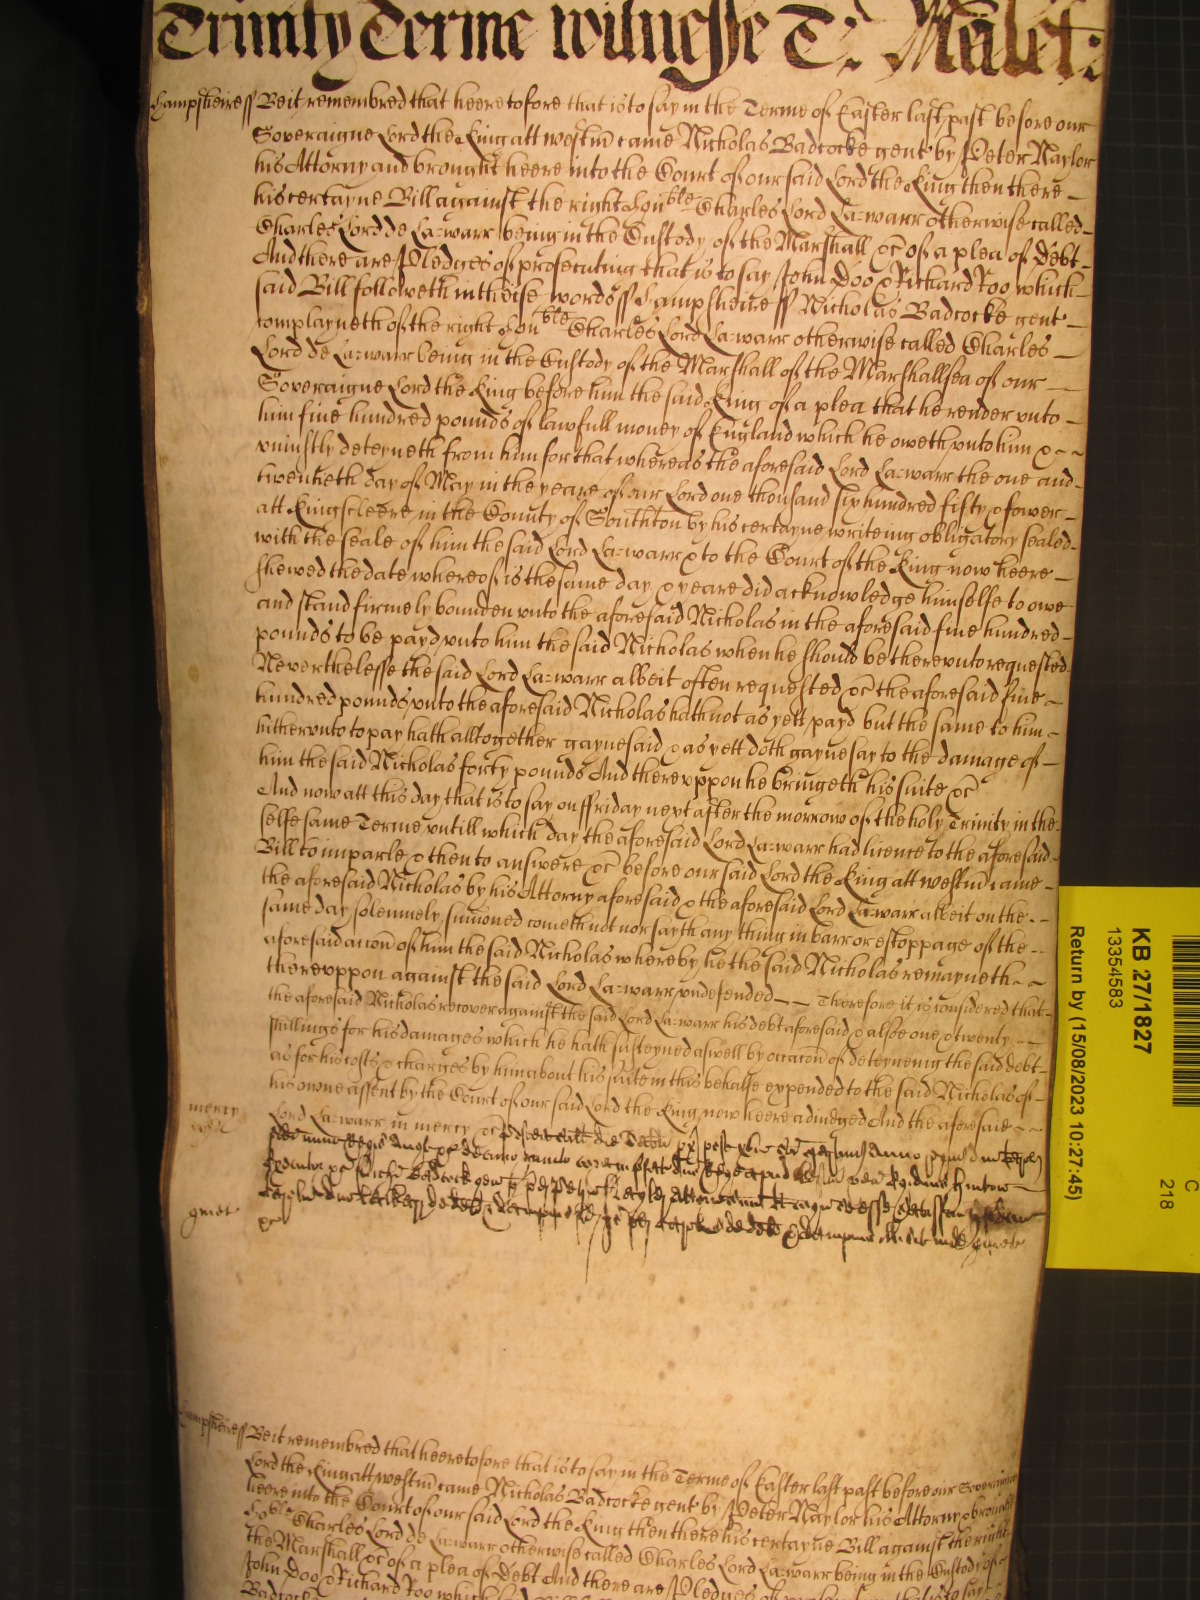 Trinity Terme witnesse T: Malet:
Hampsheire ss Be it remembred that heeretofore that is to say in the Terme of Easter last past before our
Soveraigne Lord the King att Westm̄ came Nicholas Badcocke gent by Peter Naylor
his Attorny and brought heere into the Court of our said Lord the King then there
his certayne Bill against the right Honble Charles Lord La:warr otherwise called
Charles Lord de La:warr being in the Custody of the Marshall &c̄ of a plea of Debt
And there are Pledges of prosecuting that is to say John Doo & Richard Roo which
said Bill followeth in theise words ss Hampsheire ss Nicholas Badcocke gent
complayneth of the right Honble Charles Lord La:warr otherwise called Charles
Lord de La:warr being in the Custody of the Marshall of the Marshallsea of our
Soveraigne Lord the King before him the said King of a plea that he render unto
him five hundred pounds of lawfull money of England which he oweth unto him &
uniustly deteyneth from him for that whereas the aforesaid Lord La:warr the one and
twentieth day of May in the yeare of our Lord one thousand six hundred fifty & fower
att Kingscleere in the County of Southton by his certayne writeing obligatory sealed
with the seale of him the said Lord La:warr & to the Court of the King now heere
shewed the date whereof is the same day & yeare did acknowledge himselfe to owe
and stand firmely bounden unto the aforesaid Nicholas in the aforesaid five hundred
pounds to be payd unto him the said Nicholas when he should be thereunto requested
Neverthelesse the said Lord La:warr albeit often requested &c̄ the aforesaid five
hundred pounds unto the aforesaid Nicholas hath not as yett payd but the same to him
hitherunto to pay hath alltogether gaynesaid & as yett doth gaynesay to the damage of
him the said Nicholas forty pounds And thereuppon he bringeth his suite &c̄
And now att this day that is to say on ffriday next after the morrow of the holy Trinity in the
selfe same Terme untill which day the aforesaid Lord La:warr had licence to the aforesaid
Bill to imparle & then to answere &c̄ before our said Lord the King att Westm̄ came
the aforesaid Nicholas by his Attorny aforesaid & the aforesaid Lord La:warr albeit on the
same day solemnely sum̄oned cometh not nor sayth any thing in barr or estoppage of the
aforesaid accōn of him the said Nicholas whereby he the said Nicholas remayneth
thereuppon against the said Lord La:warr undefended Therefore it is considered that
the aforesaid Nicholas recover against the said Lord La:warr his debt aforesaid & alsoe one & twenty
shillings for his damages which he hath susteyned aswell by occacōn of deteyneing the said debt
as for his costs & charges by him about his suite in this behalfe expended to the said Nicholas of
his owne assent by the Court of our said Lord the King now heere adiudged And the aforesaid
mercy Lord La:warr in mercy &c̄
Hampsheire ss Be it remembred that heeretofore that is to say in the Terme of Easter last past before our Soveraigne
Lord the King att Westm̄ came Nicholas Badcocke gent by Peter Naylor his Attorny & brought
heere into the Court of our said Lord the King then there his certayne Bill against the right
Charles Lord de La:warr otherwise called Charles Lord La:warr being in the Custody of
the Marshall &c̄ of a plea of Debt And there are Pledges of
John Doo & Richard Roo which
Badcocke
KB 27/1827
13354583
Return by (15/08/2023 10:27:45)
C
218